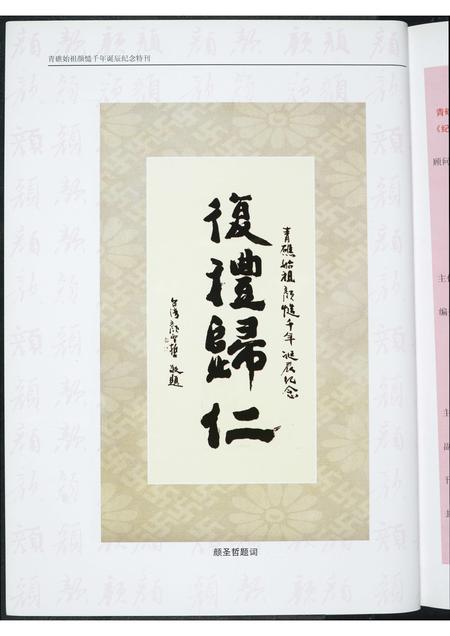 青礁始祖顏慥千年诞辰纪念特刊
青礁始祖顏慥千年诞辰纪念
復禮歸仁
台湾顏聖哲敬題
颜圣哲题词
青礁
《纪
顾问
主
编
主
副